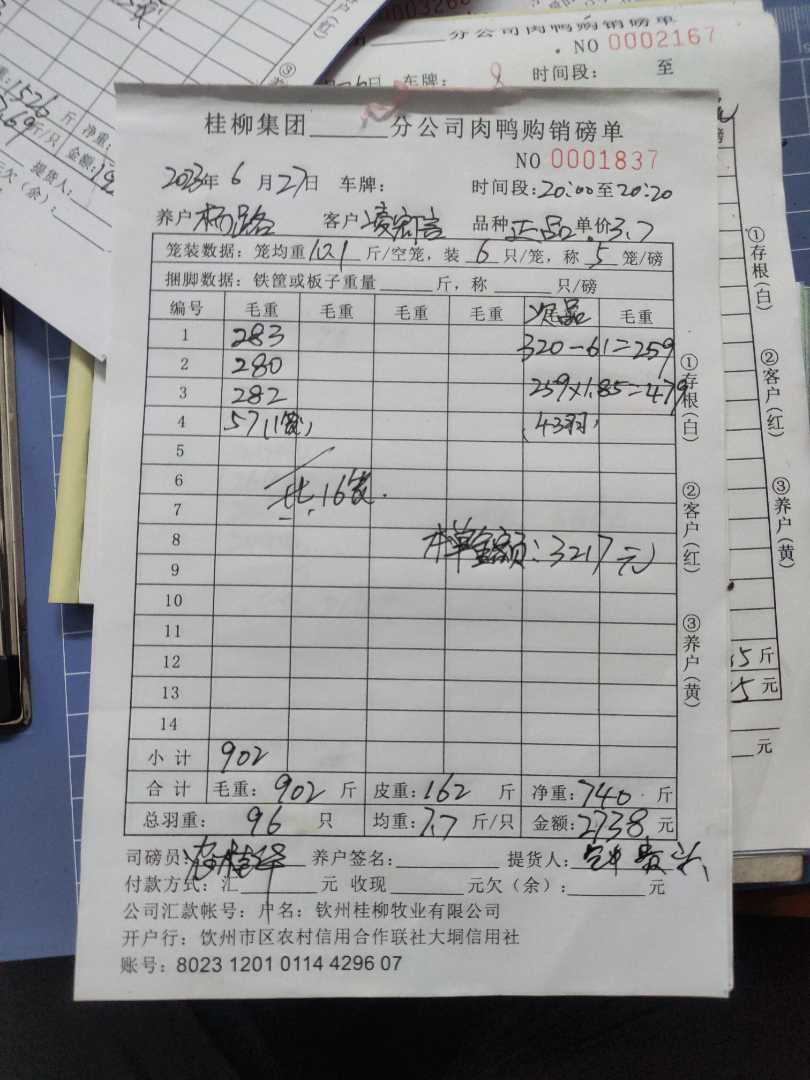 分公司肉鸭购销磅单
NO 0002167
车牌: 时间段: 至
桂柳集团______分公司肉鸭购销磅单
NO 0001837
2023年 6 月 27日 车牌: 时间段: 20:00至20:20
养户 杨路 客户 品种 正品 单价3.7
笼装数据: 笼均重 10.1 斤/空笼, 装 6 只/笼, 称 5 笼/磅
捆脚数据: 铁筐或板子重量______斤, 称______只/磅
编号 毛重 毛重 毛重 毛重 次品 毛重
1 283 320-61=259
2 280
3 282 259×1.85=479
4 57(1笼) (43羽)
5
6 共16笼.
7
8 本单金额: 3217元
9
10
11
12
13
14
小计 902
合计 毛重: 902 斤 皮重: 162 斤 净重: 740 斤
总羽重: 96 只 均重: 7.7 斤/只 金额: 2738 元
司磅员: 养户签名: 提货人:
付款方式: 汇______元 收现______元欠(余):______元
公司汇款帐号: 户名: 钦州桂柳牧业有限公司
开户行: 钦州市区农村信用合作联社大垌信用社
账号: 8023 1201 0114 4296 07
①存根(白)
②客户(红)
③养户(黄)
①存根(白)
②客户(红)
③养户(黄)
斤
元
元
斤 净重:
斤/只 金额:
元欠(余):
提货人: